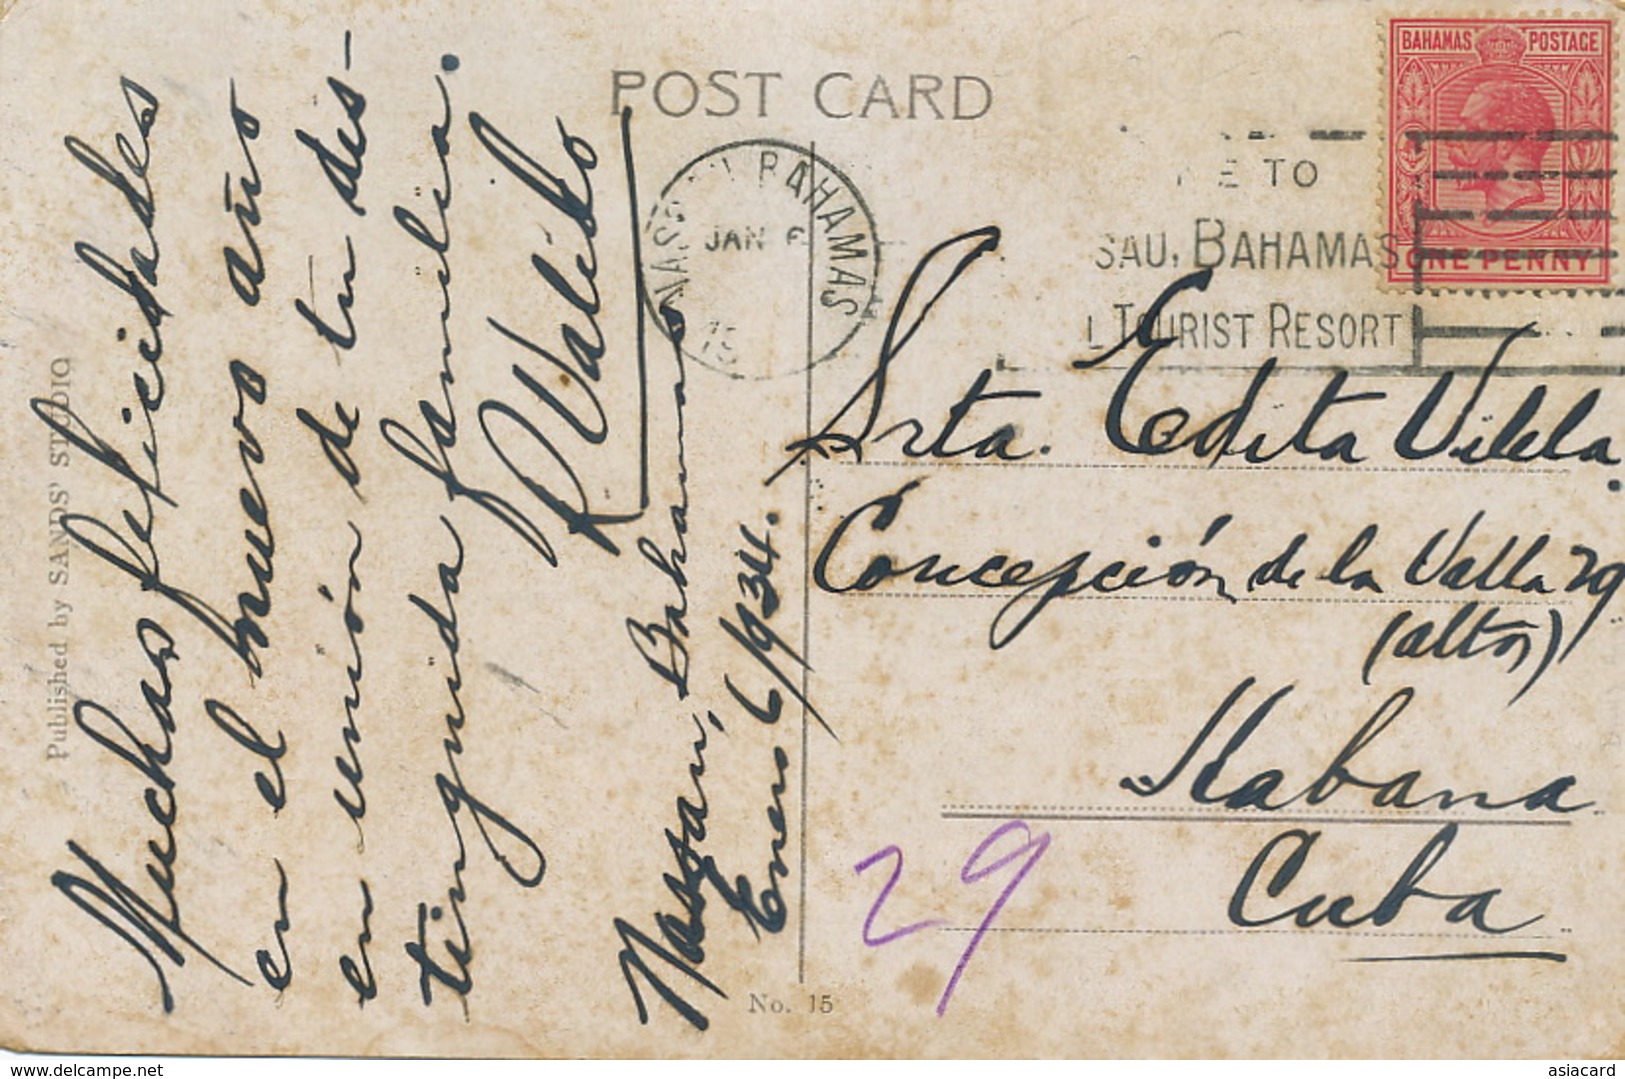 POST CARD
BAHAMAS POSTAGE
ONE PENNY
NASSAU BAHAMAS
JAN 6
E TO
SAU, BAHAMAS
L TOURIST RESORT
Published by SANDS' STUDIO
Muchas felicidades
en el nuevo año
en unión de tu dis-
tinguida familia.
Nassau, Bahamas
Enero 6/934.
Srta. Edita Vilela.
Concepción de la Valla 29
(altos)
Habana
Cuba
29
No. 15
delcampe.net
asiacard